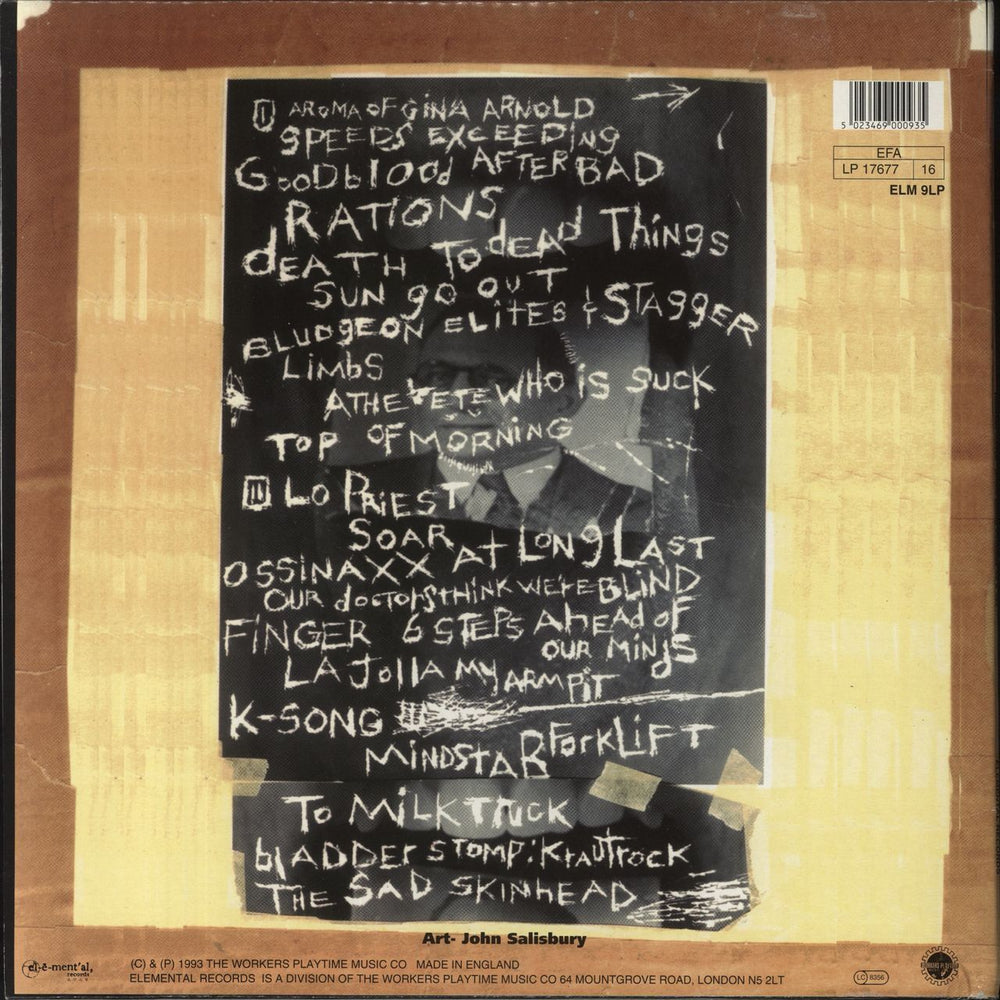 I AROMA OF GINA ARNOLD
SPEEDS EXCEEDING
GOODblOOd AFTER BAD
RATIONS
dEATH To dEAd Things
SUN gO OUT
BLUDGEON ELITES & STAGGER
LIMBS
ATHELETE WHO iS SUCK
TOP OF MORNING
II LO PRIEST
SOAR
OSSINAXX AT LONg LAST
OUR doctors think WE'rE BLIND
FINGER 6 STEPS AhEAd oF
OUR MiNdS
LA JollA MY ARMPIT
K-SONG
MINDSTAR ForkLIFT
To MILKTRUCK
blADDEr STOMP: KrAUTrOCK
THE SAD SKINHEAD
5 023469 000935
EFA
LP 17677 16
ELM 9LP
Art- John Salisbury
el-e-ment'al,
records
(C) & (P) 1993 THE WORKERS PLAYTIME MUSIC CO MADE IN ENGLAND
ELEMENTAL RECORDS IS A DIVISION OF THE WORKERS PLAYTIME MUSIC CO 64 MOUNTGROVE ROAD, LONDON N5 2LT
LC 8356